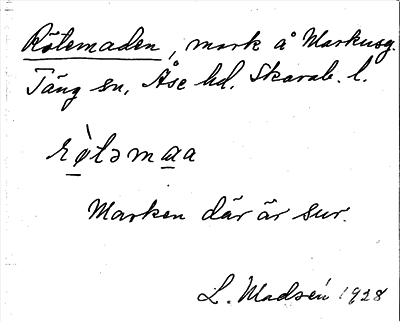 Rölemaden, mark å Markusg.
Täng sn, Åse hd. Skarab. l.
rø̀ləmaa
Marken där är sur.
L. Madsén 1928